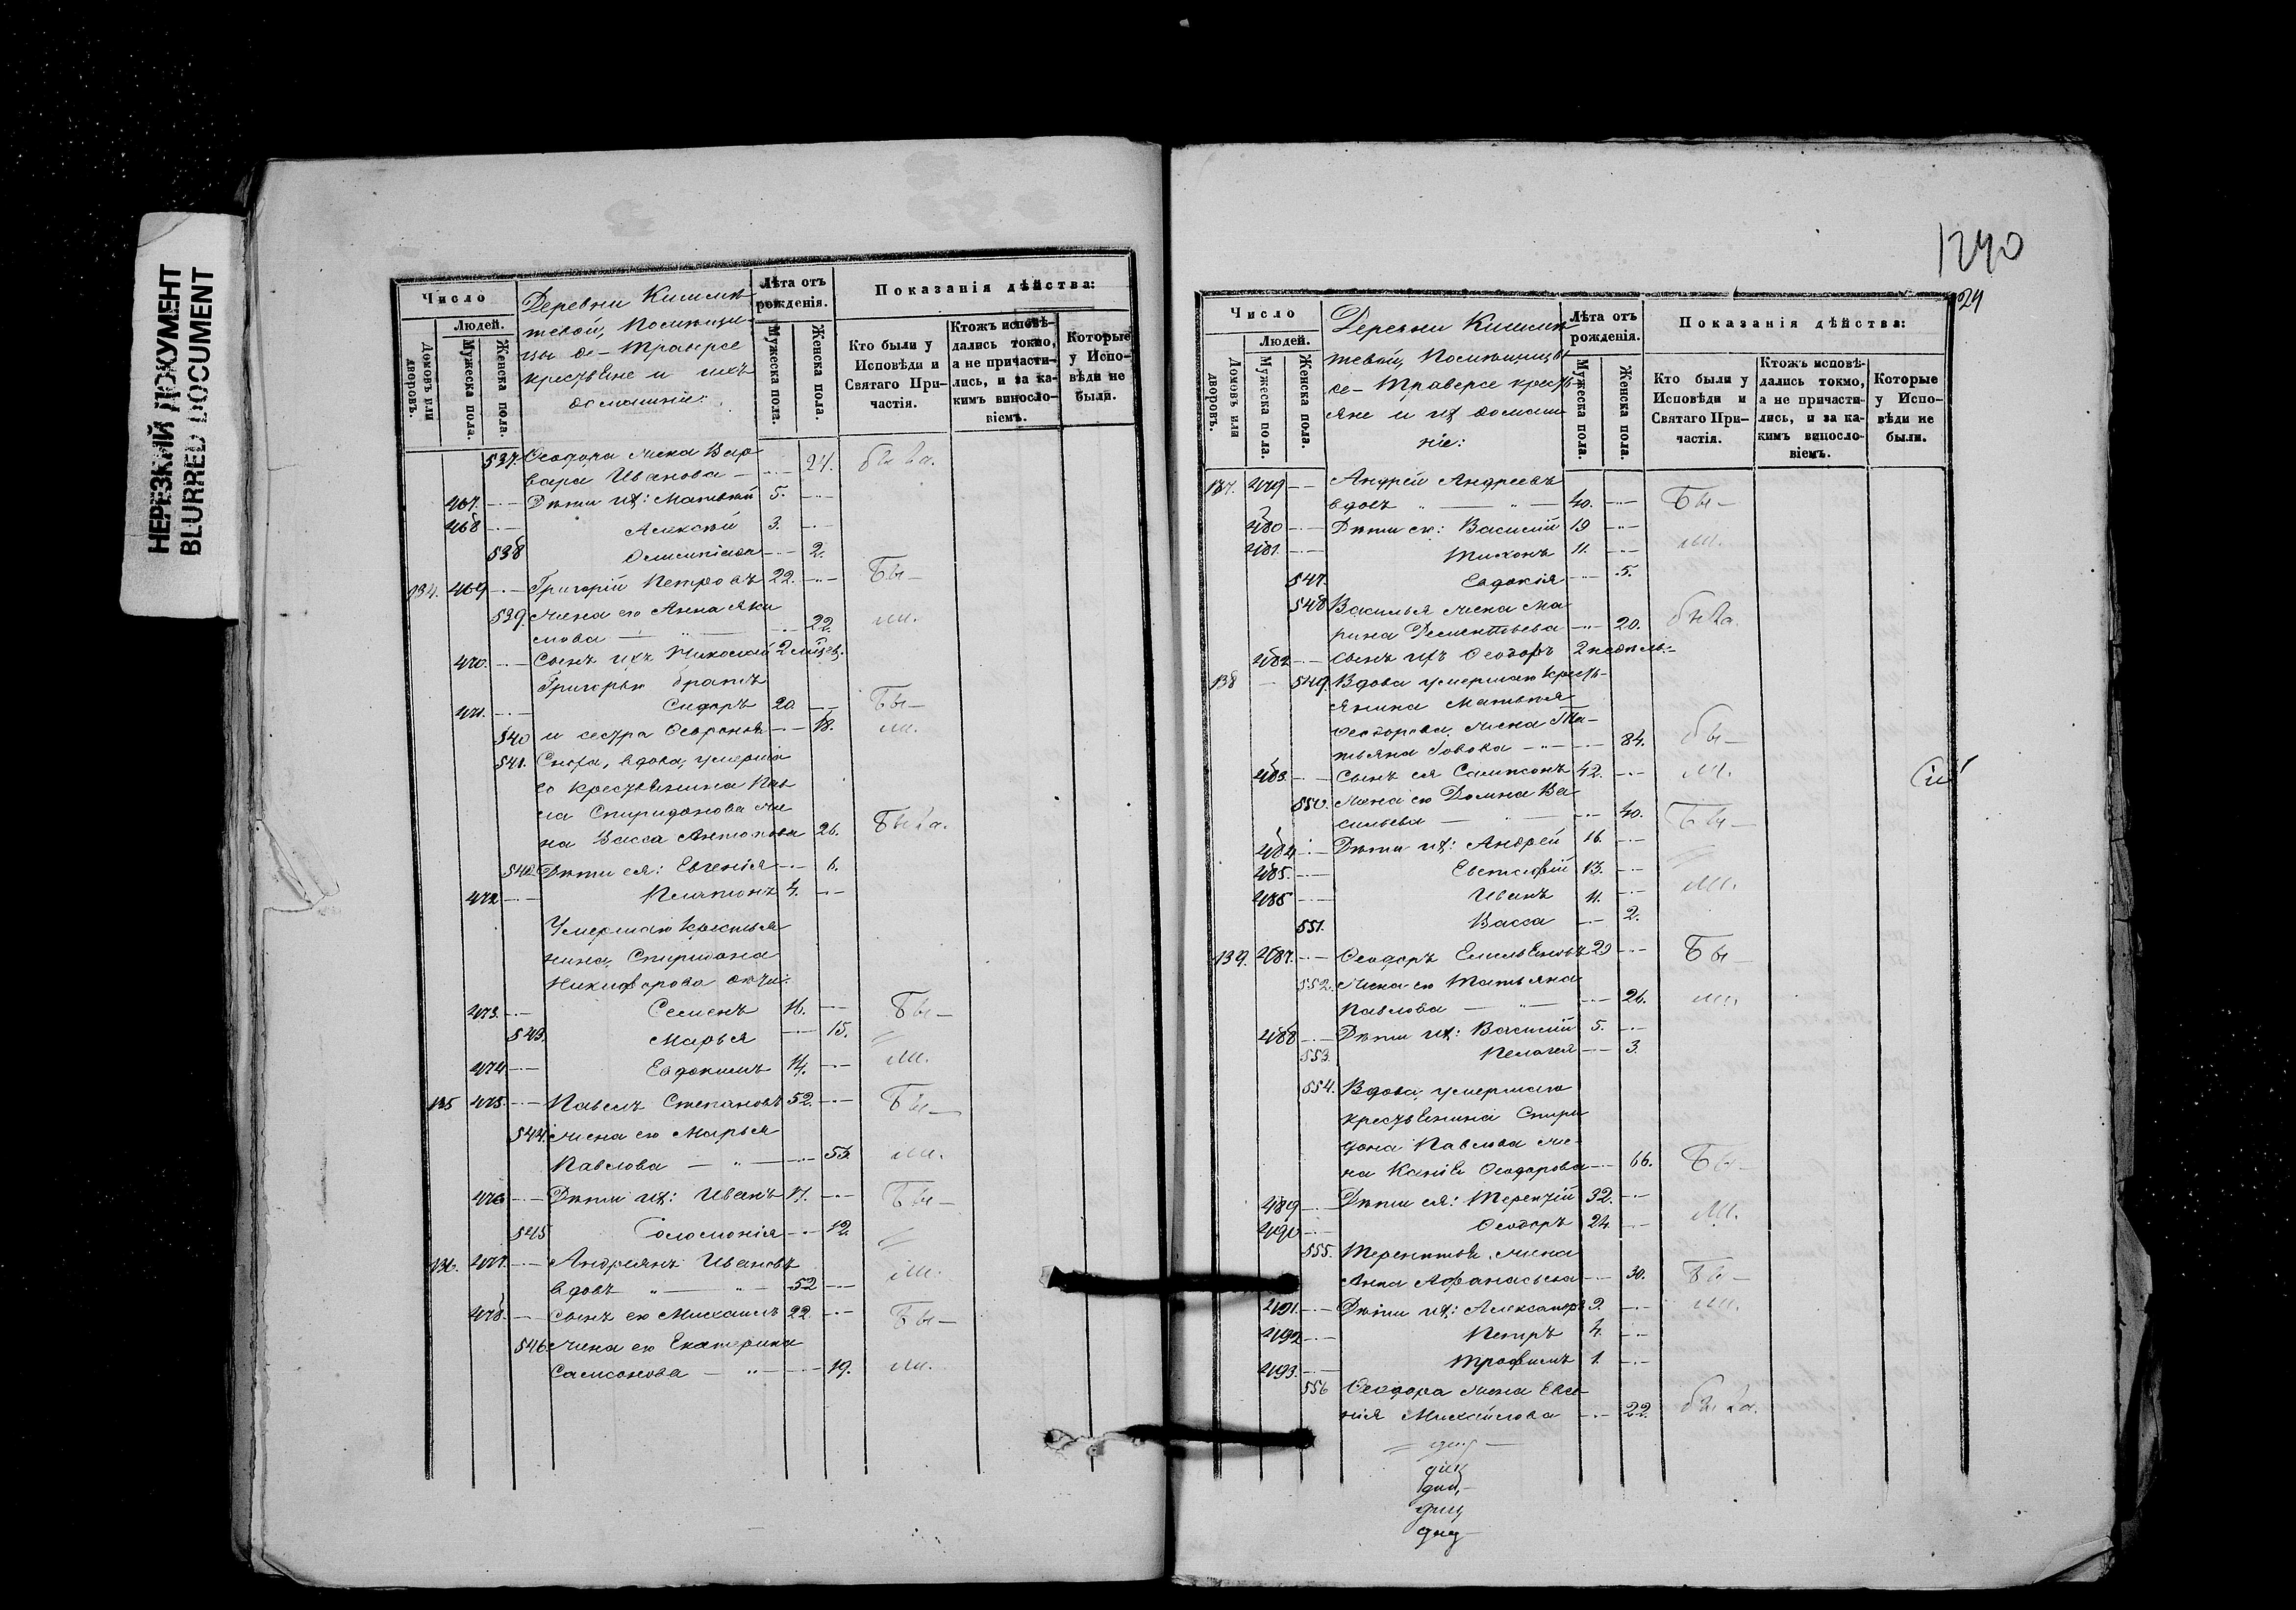 НЕРЕЗКИЙ ДОКУМЕНТ
BLURRED DOCUMENT
Число
Людей.
Домовъ или дворовъ.
Мужеска пола.
Женска пола.
Деревни
помѣщи-
цы де-Траверсе
крестьяне и ихъ
домашніе:
Лѣта отъ рожденія.
Мужеска пола.
Женска пола.
Показанія дѣйства:
Кто были у Исповѣди и Святаго При-частія.
Ктожъ исповѣ-дались токмо, а не причасти-лись, и за ка-кимъ винословіемъ.
Которые у Испо-вѣди не были.
537. Ѳеодора жена Вар
вара Иванова 24. была.
467. Дѣти их: Матвѣй 5.
468 Алексѣй 3.
538 2.
134. 469 Григорій Петровъ 22. Бы-
539. Жена его Анна Яки
мова 22. ли.
470. Сынъ ихъ Николай 2 мѣсец.
Григорья братъ
471. Сидоръ 20. Бы-
540 и сестра 18. ли.
541. Сноха, вдова, умерша
го крестьянина Пав
ла Спиридонова же
на Васса Антонова 26. Была.
542 Дѣти ея: Евгенія 6.
472 Платонъ 4.
Умершаго крестья
нина Спиридона
Никифорова дѣти:
473. Семенъ 16. Бы-
543. Марья 15.
474 Евдокимъ 14. ли.
135 475. Павелъ Степановъ 52. Бы-
544. Жена его Марья
Павлова 53. ли.
476 Дѣти их: Иванъ 17. Бы-
545 Соломонія 12.
136. 477. Андреянъ Ивановъ
вдовъ 52 ли.
478. Сынъ его Михаилъ 22. Бы-
546 Жена его Екатерина
Самсонова 19. ли.
1240
24
Число
Людей.
Домовъ или дворовъ.
Мужеска пола.
Женска пола.
Деревни
помѣщицы
де-Траверсе кресть
яне и их домаш
ніе:
Лѣта отъ рожденія.
Мужеска пола.
Женска пола.
Показанія дѣйства:
Кто были у Исповѣди и Святаго При-частія.
Ктожъ исповѣ-дались токмо, а не причасти-лись, и за ка-кимъ винословіемъ.
Которые у Испо-вѣди не были.
137. 479 Андрей Андреевъ
вдовъ 40. Бы-
480 Дѣти его: Василій 19
481. Тихонъ 11. ли.
547. Евдокія 5.
548 Василья жена Ма
рина Дементьева 20. была.
482 Сынъ ихъ Ѳеодоръ 2 недѣль.
138 549. Вдова умершаго кресть-
янина Матвѣя
Ѳеодорова жена Та-
тьяна 84. бы-
483. Сынъ ея Сампсонъ 42. ли.
550. Жена его Домна Ва
сильева 40. Бы-
484 Дѣти их: Андрей 16.
485. Евстафій 13.
486 Иванъ 11. ли.
551. Васса 2.
139. 487. Ѳеодоръ Емельяновъ 29 Бы-
552. Жена его Татьяна
Павлова 26. ли.
488 Дѣти их: Василій 5.
553. Пелагея 3.
554. Вдова умершаго
крестьянина Спири
дона Павлова же-
на Ѳеодорова 66. Бы-
489 Дѣти ея: Терентій 32.
490 Ѳеодоръ 24 ли.
555. Терентья жена
Анна Афанасьева 30. Бы-
491. Дѣти их: Александръ 9. ли.
492 Петръ 4.
493. Трофимъ 1.
556 Ѳеодора жена Евге
нія Михайлова 22. была.